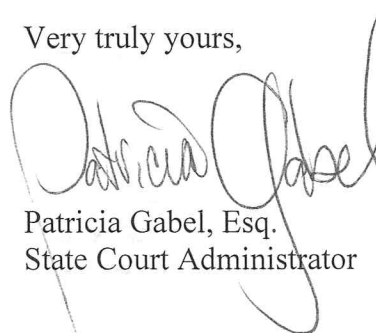 Very truly yours,
Patricia Gabel
Patricia Gabel, Esq.
State Court Administrator